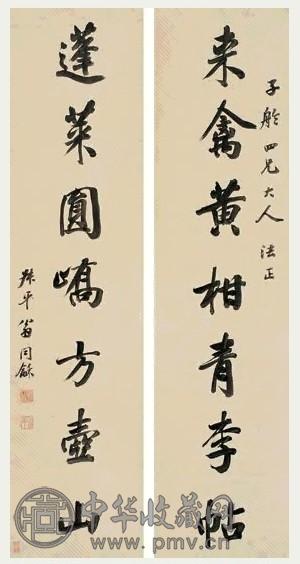 子舲四兄大人 法正
来禽黄柑青李帖
蓬莱圓嶠方壺山
叔平翁同龢
中华收藏网
www.pmv.cn